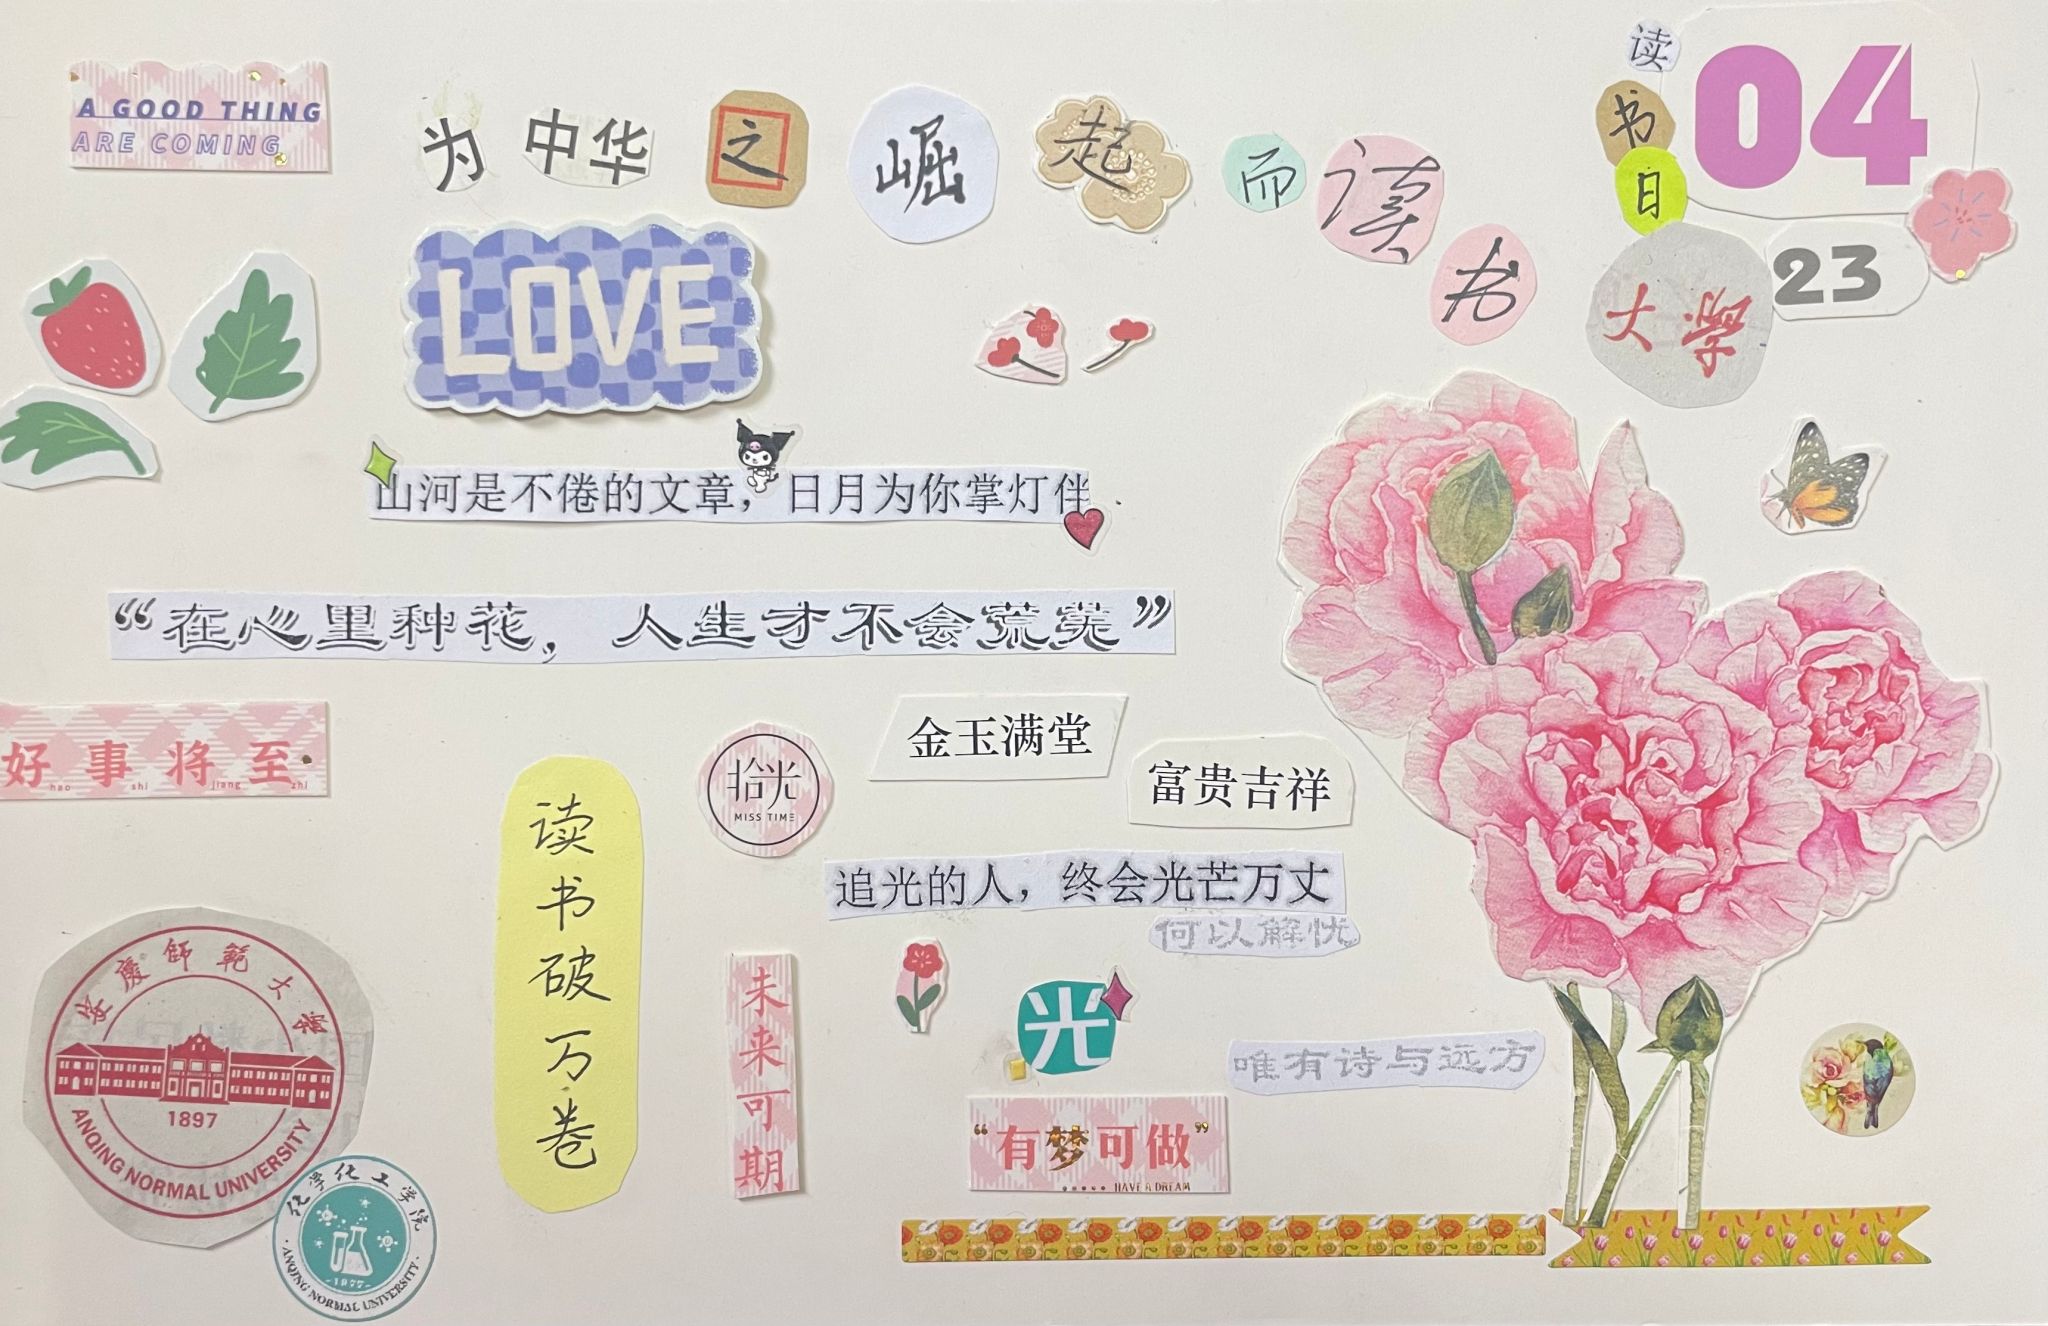 A GOOD THING
ARE COMING
为中华之崛起而读书
读书日
04
23
大学
LOVE
山河是不倦的文章，日月为你掌灯伴
“在心里种花，人生才不会荒芜”
好事将至
hao shi jiang zhi
拾光
MISS TIME
金玉满堂
富贵吉祥
读书破万卷
追光的人，终会光芒万丈
何以解忧
未来可期
光
唯有诗与远方
“有梦可做”
HAVE A DREAM
安慶師範大學
1897
ANQING NORMAL UNIVERSITY
化学化工学院
1977
ANQING NORMAL UNIVERSITY